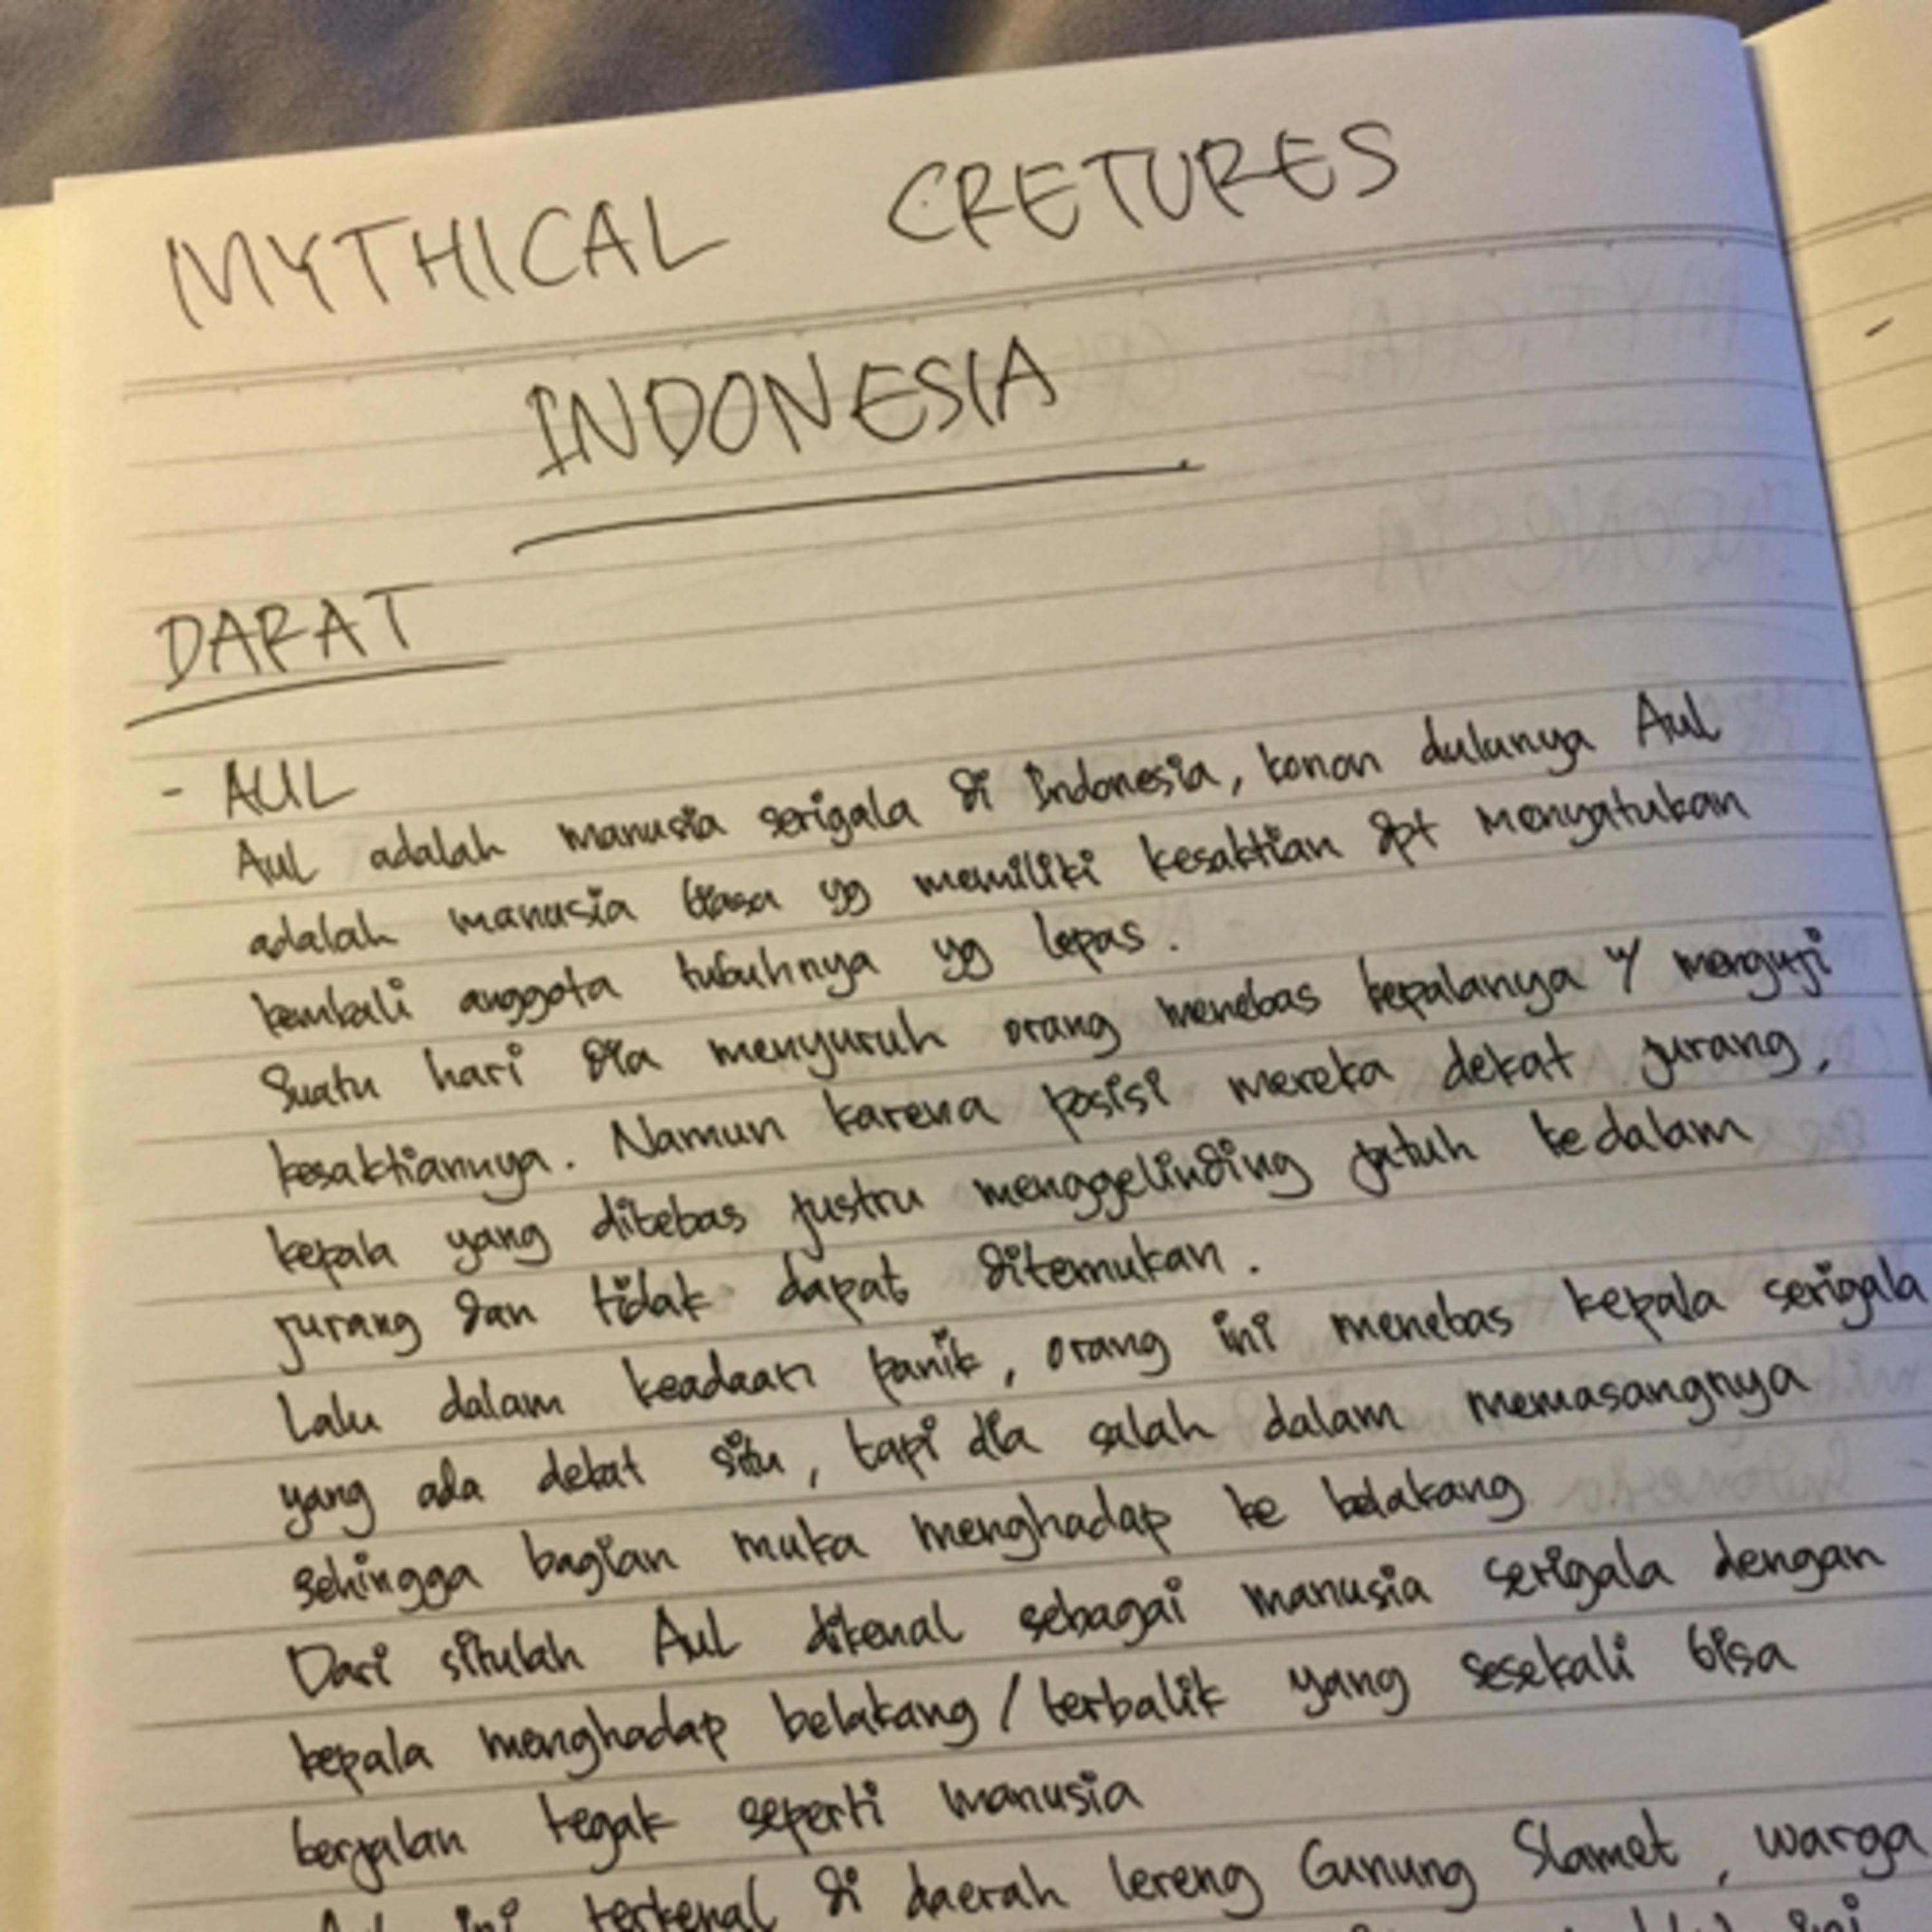 MYTHICAL CRETURES
INDONESIA
DARAT
- AUL
Aul adalah manusia serigala di Indonesia, konon dulunya Aul
adalah manusia biasa yg memiliki kesaktian dpt menyatukan
kembali anggota tubuhnya yg lepas.
Suatu hari dia menyuruh orang menebas kepalanya u/ menguji
kesaktiannya. Namun karena posisi mereka dekat jurang,
kepala yang ditebas justru menggelinding jatuh kedalam
jurang dan tidak dapat ditemukan.
Lalu dalam keadaan panik, orang ini menebas kepala serigala
yang ada dekat situ, tapi dia salah dalam memasangnya
sehingga bagian muka menghadap ke belakang
Dari situlah Aul dikenal sebagai manusia serigala dengan
kepala menghadap belakang/terbalik yang sesekali bisa
berjalan tegak seperti manusia
ini terkenal di daerah lereng Gunung Slamet, warga
ini